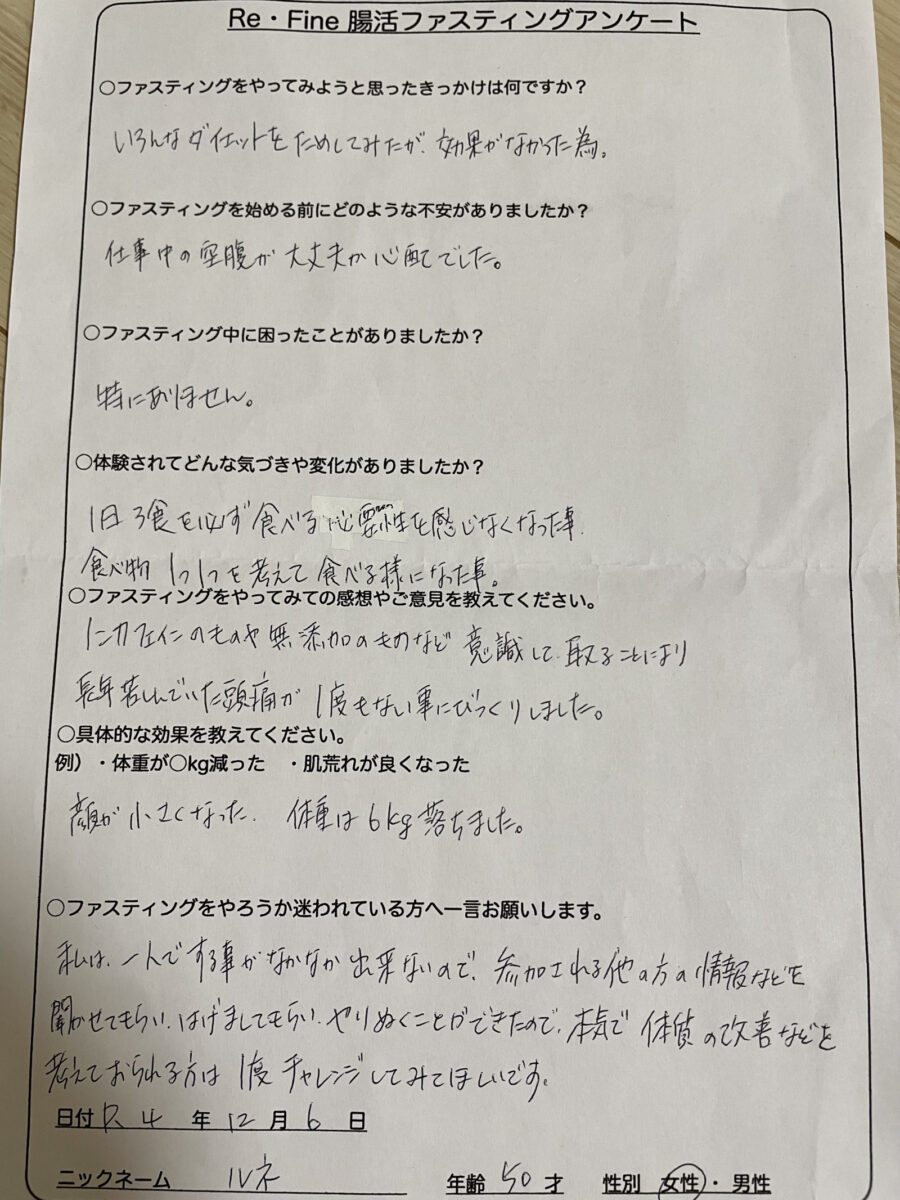 Re・Fine 腸活ファスティングアンケート
○ファスティングをやってみようと思ったきっかけは何ですか？
いろんなダイエットをためしてみたが、効果がなかった為。
○ファスティングを始める前にどのような不安がありましたか？
仕事中の空腹が大丈夫か心配でした。
○ファスティング中に困ったことがありましたか？
特にありません。
○体験されてどんな気づきや変化がありましたか？
1日3食を必ず食べる必要性を感じなくなった事.
食べ物1つ1つを考えて食べる様になった事。
○ファスティングをやってみての感想やご意見を教えてください。
ノンカフェインのものや無添加のものなど意識して取ることにより
長年苦しんでいた頭痛が1度もない事にびっくりしました。
○具体的な効果を教えてください。
例）・体重が○kg減った　・肌荒れが良くなった
顔が小さくなった. 体重は6kg落ちました。
○ファスティングをやろうか迷われている方へ一言お願いします。
私は、一人でする事がなかなか出来ないので、参加される他の方の情報などを
聞かせてもらい、はげましてもらい、やりぬくことができたので、本気で体質の改善などを
考えておられる方は1度チャレンジしてみてほしいです。
日付 R.4 年 12 月 6 日
ニックネーム ルネ 年齢 50 才 性別 女性・男性